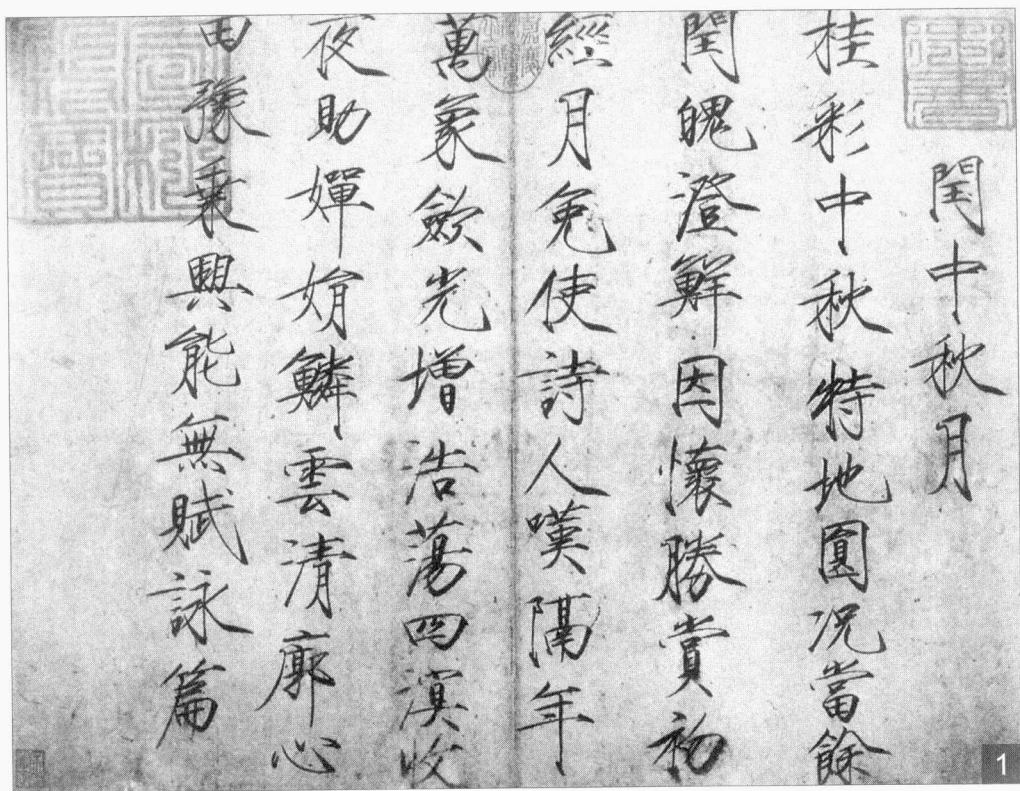 閏中秋月
桂彩中秋特地圓況當餘
閏魄澄鮮因懷勝賞初
經月免使詩人嘆隔年
萬象斂光增浩蕩四溟收
夜助嬋娟鱗雲清廓心
田豫乗興能無賦詠篇
1